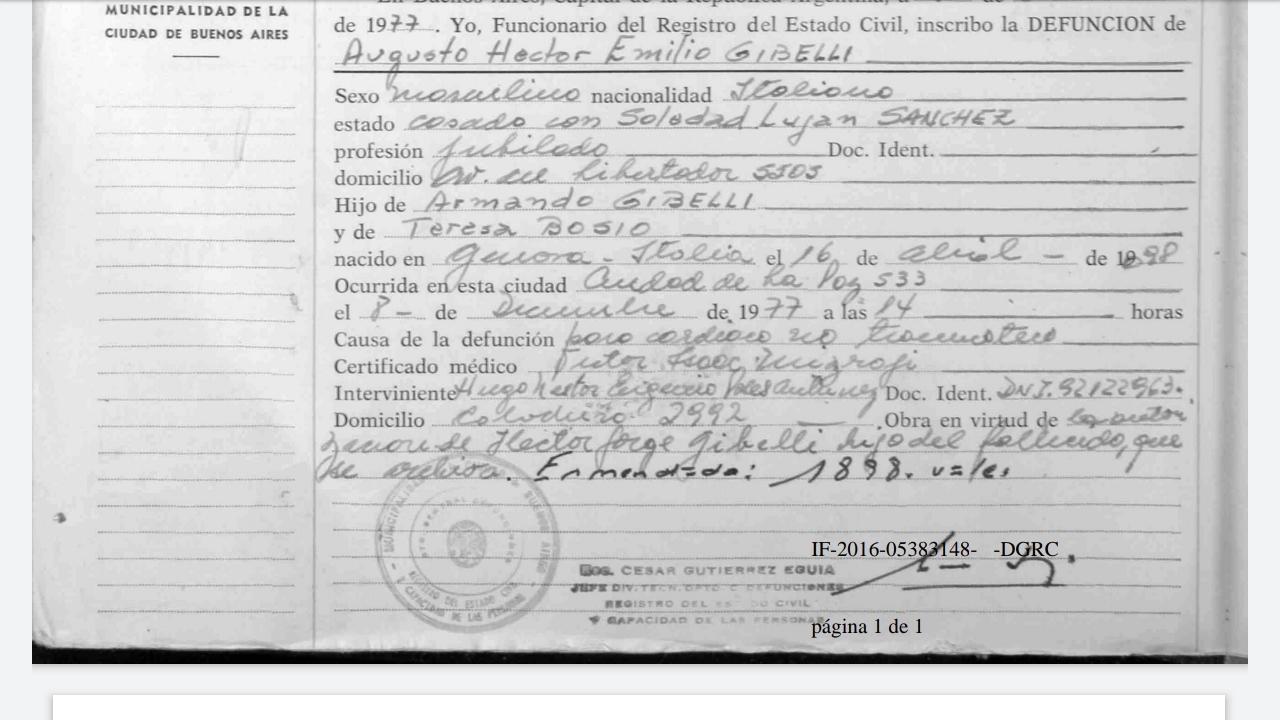 MUNICIPALIDAD DE LA
CIUDAD DE BUENOS AIRES
En Buenos Aires, Capital de la República Argentina, a
de 1977. Yo, Funcionario del Registro del Estado Civil, inscribo la DEFUNCION de
Augusto Hector Emilio GIBELLI
Sexo masculino nacionalidad Italiano
estado casado con Soledad Lujan SANCHEZ
profesión Jubilado Doc. Ident.
domicilio Av. del Libertador 5505
Hijo de Armando GIBELLI
y de Teresa BOSIO
nacido en Genova - Italia el 16 de abril - de 1898
Ocurrida en esta ciudad Ciudad de La Paz 533
el 8 - de Diciembre de 1977 a las 14 horas
Causa de la defunción paro cardiaco no traumatico
Certificado médico Isaac
Interviniente Hugo Nestor Doc. Ident. DNI. 92122963.
Domicilio 2992 Obra en virtud de la autori
zacion de Hector Jorge Gibelli hijo del fallecido, que
se archiva. Enmendada: 1898. vale.
MUNICIPALIDAD BUENOS AIRES
REGISTRO DEL ESTADO CIVIL
Y CAPACIDAD DE LAS PERSONAS
IF-2016-05383148- -DGRC
CESAR GUTIERREZ EGUIA
JEFE DIV. TECN. DPTO. DEFUNCIONES
REGISTRO DEL ESTADO CIVIL
Y CAPACIDAD DE LAS PERSONAS
página 1 de 1